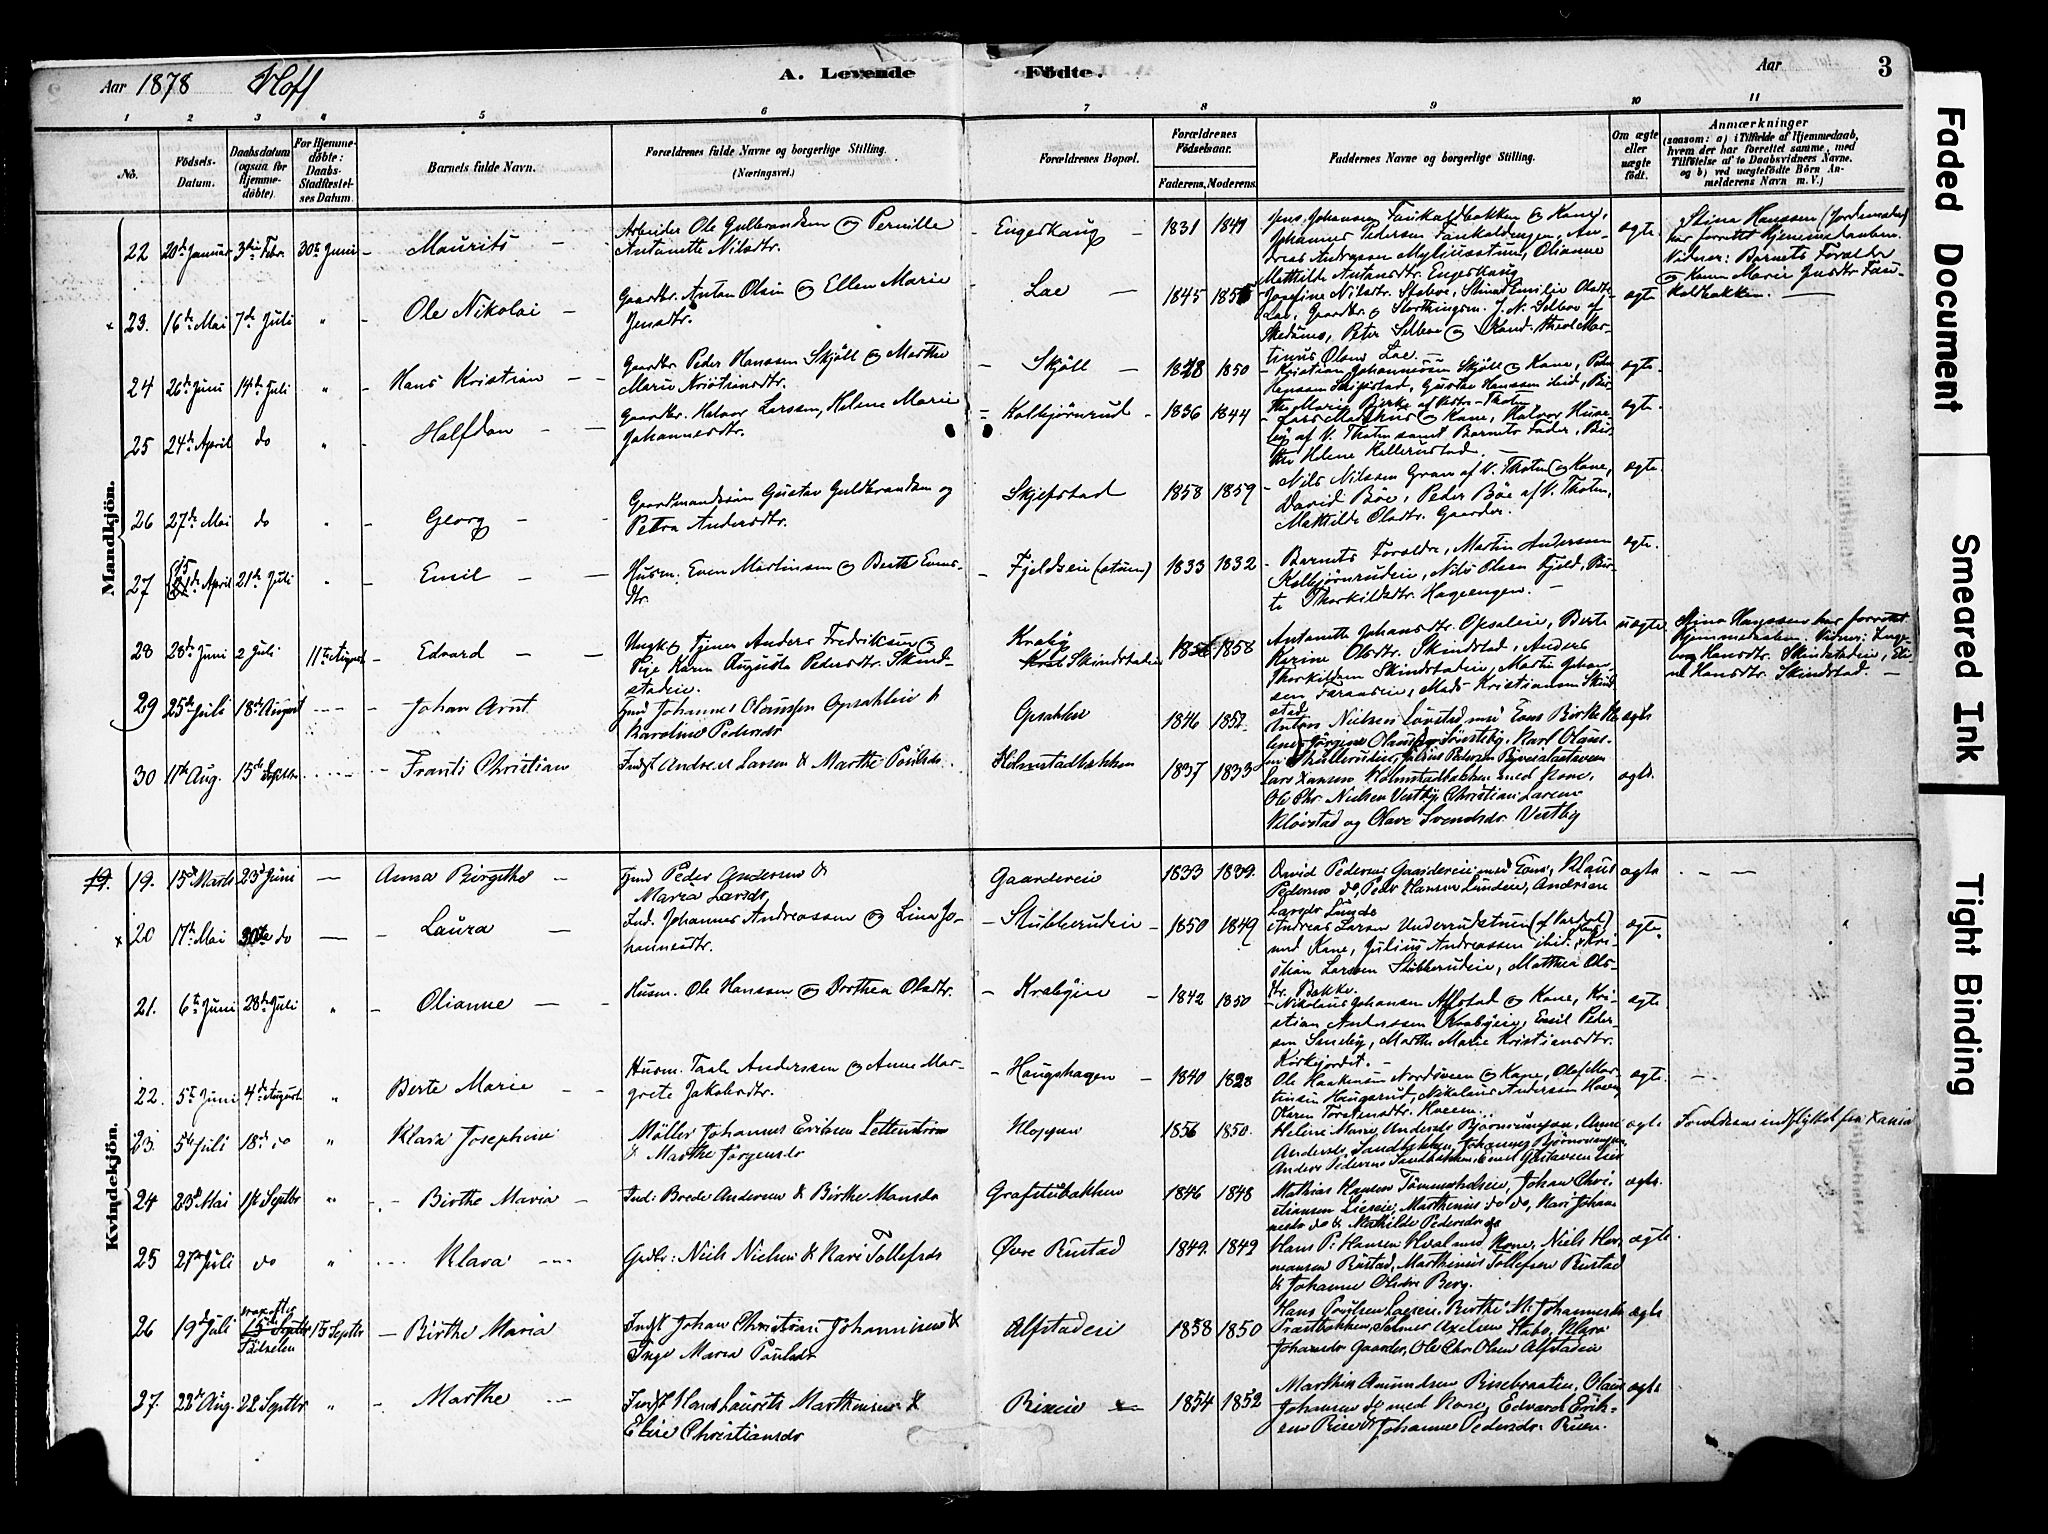 Aar 1878 Hoff A. Levende Fødte. Aar 3
1 2 3 4 5 6 7 8 9 10 11
No.
Fødsels-
Datum.
Daabsdatum
(ogsaa for
Hjemme-
døbte).
For Hjemme-
døbte:
Daabs-
Stadfæstel-
ses Datum.
Barnets fulde Navn.
Forældrenes fulde Navne og borgerlige Stilling.
(Næringsvei.)
Forældrenes Bopæl.
Forældrenes
Fødselsaar.
Faderens. Moderens.
Faddernes Navne og borgerlige Stilling.
Om ægte
eller
uægte
født.
Anmærkninger
(saasom: a) i Tilfælde af Hjemmedaab,
hvem der har forrettet samme, med
Tilføielse af to Daabsvidners Navne.
og b) ved uægtefødte Børn An-
melderens Navn m. V.)
Mandkjön.
22 20de Januar 3die Febr. 30te Juni – Maurits –
Arbeider Ole Gulbrandsen og Pernille
Antonette Nilsdtr.
Engerhaug – 1831 1841
Jens Johansen Faukaldbakken og Kone,
Johannes Pedersen Faukaldengen, An-
dreas Andreasen Myliusstuen, Olianne
Mathilde Antonsdtr. Engerhaug
ægte.
Stina Hanssen (Jordemoder)
har forrettet Hjemmedaaben.
Vidner: Barnets Forældre
og Kone Marie Jensdtr Fau-
kaldbakken. –
x 23. 16de Mai 7de Juli " – Ole Nikolai –
Gaardbr. Anton Olsen og Ellen Marie
Jensdtr.
– Lae – 1845 1855
Josefine Nilsdtr. Staboe, Stina Emilie Olsdtr.
Lae, Gaardbr. og Storthingsm. J. N. Selboe af
Skedsmo, Peter Selboe og Kand. theol Mar-
tinus Olsen Lae. –
ægte
24 26de Juni 14de Juli " – Hans Kristian –
Gaardbr. Peder Hanssen Skjöll og Marthe
Marie Kristiansdtr.
– Skjöll – 1828 1850
– Kristian Johannessen Skjöll og Kone, Peder
Hanssen Skjefstad, Gusta Hanssen ibid, Bir-
the Marie Birke af Vestre-Thoten
ægte.
25 24de April do " – Halfdan –
Gaardbr. Halvor Larssen, Helene Marie
Johannesdtr.
– Kolbjörnrud – 1836 1844
– Lars Mathæus og Kone, Halvor Huse-
by af V. Thoten samt Barnets Fader, Bir-
the Helene Kollerudstad. –
ægte.
26 27de Mai do " – Georg –
Gaardmandssön Gustav Gulbrandsen og
Petra Andersdtr.
Skjefstad 1858 1859
– Nils Nilssen Gran af V. Thoten og Kone,
David Böe, Peder Böe af V. Thoten,
Mathilde Olsdtr. Gaarder.
ægte.
27 April 21de Juli " Emil –
Husm. Even Martinsen og Berth Evens-
dtr.
– Fjeldseie (stuen) 1833 1832
– Barnets Forældre, Martin Andersen
Kolbjörnrudeie, Nils Olsen Fjeld, Bir-
te Thorkildsdtr. Hageengen. –
ægte.
28 28de Juni 2 Juli 11te August – Edvard –
Ungk. og Tjener Anders Fredriksen og
Pige Karen Augusta Pedersdtr. Skind-
stadeie.
Kraby
Skindstadeie 1858
Antonette Johansdtr. Opsaleie, Berte
Karine Olsdtr. Skindstad, Anders
Thorkildsen Skindstadeie, Martin Johan-
sen Faraaseie, Mads Kristiansen Skind-
stad
uægte.
Stina Hanssen har forrettet
Hjemmedaaben. Vidner: Inge-
borg Hansdtr. Skindstadeie, Eli-
ne Hansdtr. Skindstad. –
29 25de Juli 18de August – – Johan Arnt
Gmd Johannes Olaussen Opsahleie &
Karoline Pedersdr
Opsahleie 1846 1852
Anton Nielsen Lövstad med Kone Birthe He-
lene Jörgine Olausdr Sönsteby, Karl Olaus-
sen Stulleruddeie, Julius Pedersen
ægte
30 11te Aug. 15de Septbr. – – Frants Christian
Indst Andreas Larsen & Marthe Poulsdr.
Holmstadbakken 1837 1833
Lars Hansen Holmstadbakken med Kone,
Ole Chr. Nielsen Vestby, Christian Larsen
Klövstad og Olave Svendsdr Vestby
ægte.
Kvindekjön.
19. 19. 15de Marts 23de Juni – Anna Birgithe –
Gmd Peder Andersen &
Maria Larsdr
Gaardereie 1833 1839.
David Pedersen Gaardereie med Kone, Klaus
Pedersen do, Peder Hansen Lundeie, Andrine
Larsdr Lunde
ægte
x 20 17de Mai 30te do – – Laura –
Ind. Johannes Andreassen og Lina Jo-
hannesdtr.
– Stubberudeie – 1850 1849
Andreas Larsen Underrudstuen (af Vardal)
med Kone, Julius Andreassen ibid, Kri-
stian Larssen Stubberudeie, Matthea Ols-
dtr. Bakke.
ægte.
21. 6te Juni 28de Juli " – Olianne –
Husm. Ole Hanssen og Dorthea Olsdtr.
– Krabyeie – 1842 1850
– Nikolaus Johansen Alfstad og Kone, Kri-
stian Anderssen Krabyeie, Emil Peder-
sen Sineby, Marthe Marie Kristiansdtr.
Kirkejordet. –
ægte.
22. 5te Juni 4de August. " Berte Marie –
Husm. Taale Anderssen og Anne Mar-
grete Jakobsdtr.
– Haugshagen – 1840 1828
Ole Haakensen Nordsveen og Kone, Olaf Mar-
tinsen Haugsrud, Nikolaus Andersen Hoven,
Karen Torstensdtr. Hoeen.
ægte.
23. 5te Juli 18de do " Klara Josephine
Möller Johannes Eriksen Setterström
& Marthe Jörgensdr
Kloppen 1856 1850.
Helene Marie Andersdr Björnerudsen, Anne
Andersdr. Sandbakken, Johannes Björnerudsen,
Anders Pedersen Sandbakken, Emil Gustavsen Lier
ægte
Forældrene indflyttet fra Xania
24 23de Mai 1ste Septbr " – Birthe Maria –
Ind: Brede Andersen & Birthe Hansdr
Grafstubakken 1846 1848
Mathias Hansen Tömmerholseie, Johan Chri-
stiansen Liereie, Marthinius do do, Kari Johan-
nesdr do & Mathilde Pedersdr do
ægte.
25 27de Juli do " – Klara –
Grdbr: Niels Nielsen & Kari Tollefsdr
Övre Rustad 1849. 1842
Hans P: Hansen Hval med Kone, Niels Her-
mansen Rustad, Marthinius Tollefsen Rustad
& Johanne Olsdr Berg.
ægte.
26 19de Juli strax efter
15de Septbr
Fødselen 15 Septbr – Birthe Maria
Indst Johan Christian Johannesen &
Inge Maria Poulsdr
Alfstadeie 1858 1850
Hans Poulsen Laeseie, Birthe M. Johannesdr
Præstbakken, Selmer Axelsen Stabo, Klara
Johansdr Gaarder, Ole Chr. Olsen Alfstadeie
ægte
27. 22de Aug. 22 Septbr " – Marthe –
Indst Hans Laurits Marthinsen &
Elise Christiansdr
Riseeie 1854 1852
Marthin Amundsen Risebraaten, Olaus
Johansen do med Kone, Edvard Erik-
sen Rise & Johanne Pedersdr Ruen.
ægte
Faded Document
Smeared Ink
Tight Binding